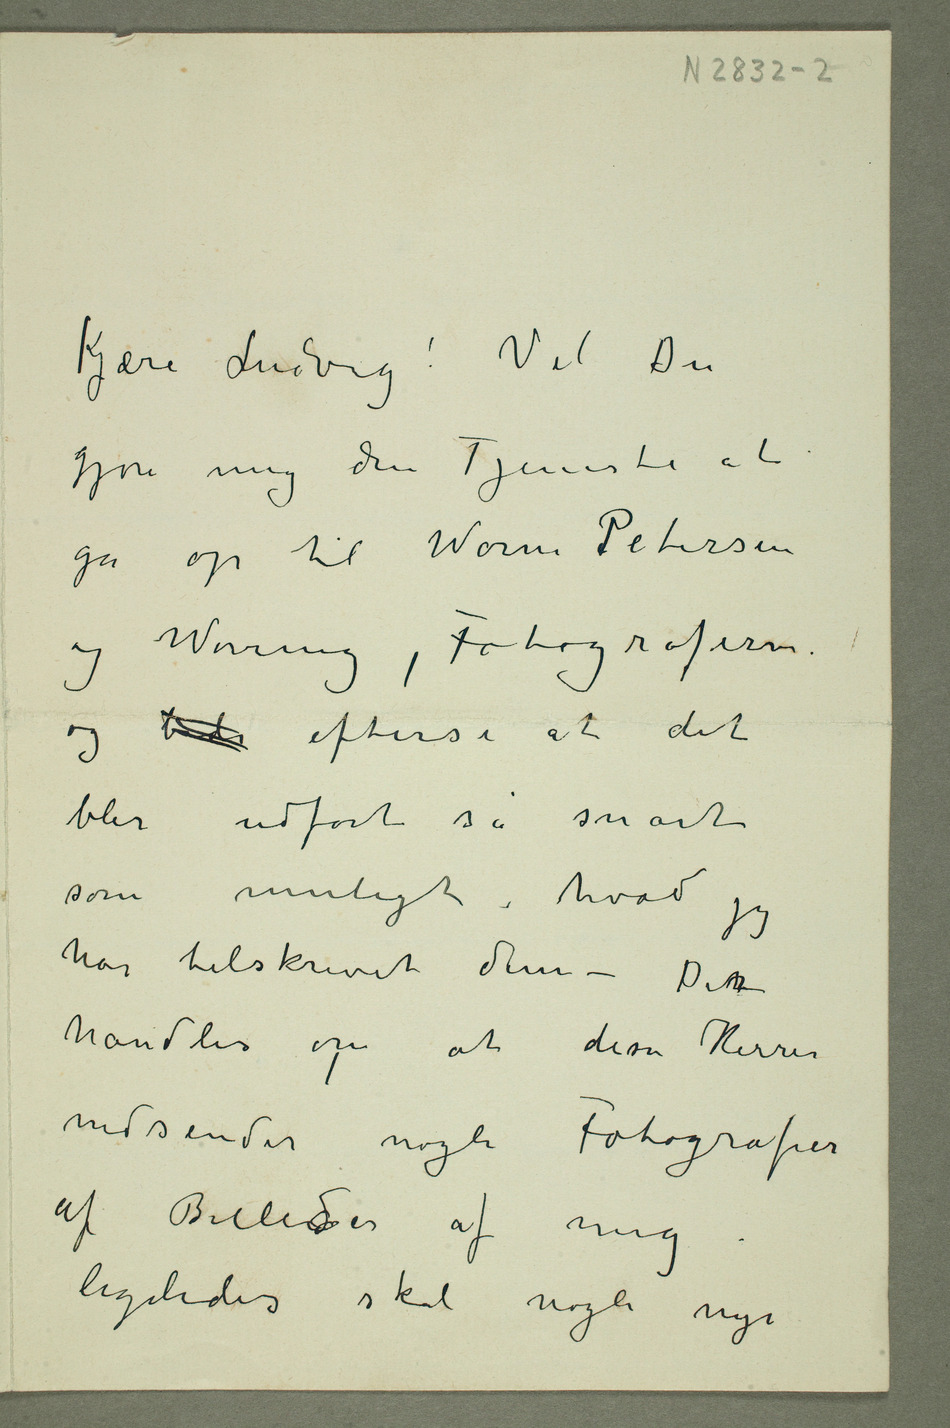 N 2832-2
Kjære Ludvig! Vil Du
gjøre mig den Tjeneste at
gå op til Worm Petersen
og Wæring, Fotografern.
og efterse at det
blir udført så snart
som muligt, hvad jeg
har tilskrevet dem – Det
handles om at disse Herrer
nedsender nogle Fotografier
af Billeder af mig.
ligeledes skal nogle nye